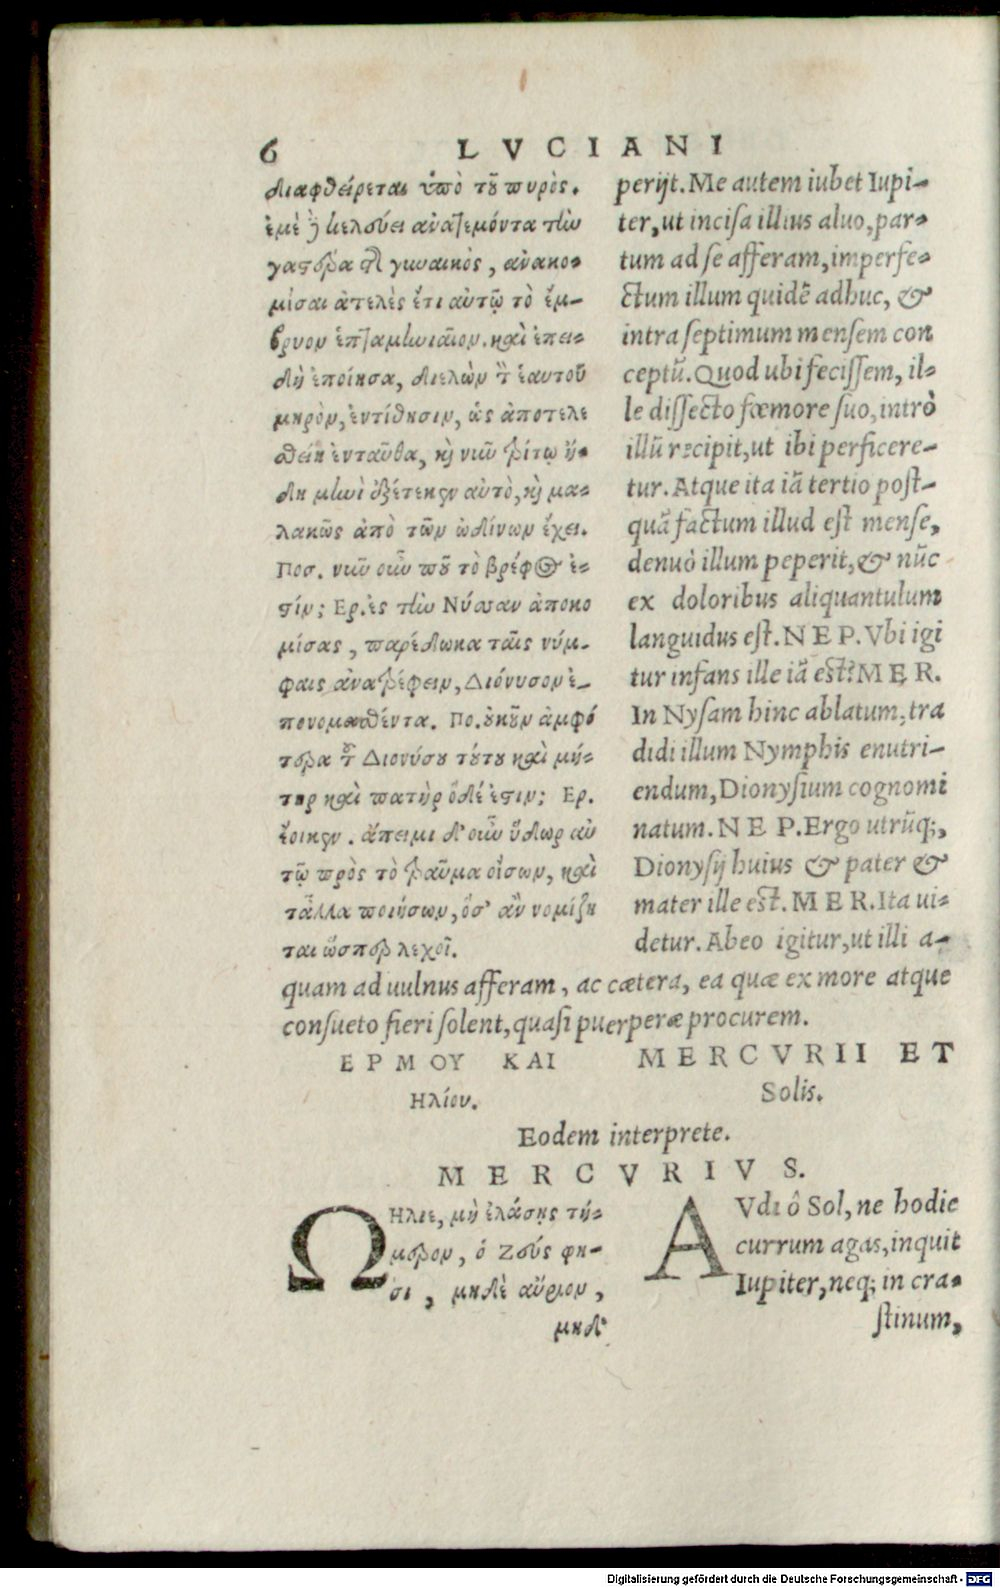 6 LVCIANI
διαφθείρεται ὑπὸ τοῦ πυρὸς.
ἐμὲ δὲ κελεύει ἀνατεμόντα τὴν
γαστέρα τῆς γυναικὸς, ἀνακο-
μίσαι ἀτελὲς ἔτι αὐτῷ τὸ ἔμ-
βρυον ἑπταμηνιαῖον. καὶ ἐπει-
δὴ ἐποίησα, διελὼν τὸν ἑαυτοῦ
μηρὸν, ἐντίθησιν, ὡς ἀποτελε
σθείη ἐνταῦθα, καὶ νῦν τρίτῳ ἤ-
δη μηνὶ ἐξέτεκεν αὐτὸ, καὶ μα-
λακῶς ἀπὸ τῶν ὠδίνων ἔχει.
Ποσ. νῦν οὖν ποῦ τὸ βρέφος ἐ-
στίν; Ερ. ἐς τὴν Νύσαν ἀποκο
μίσας, παρέδωκα ταῖς νύμ-
φαις ἀνατρέφειν, Διόνυσον ἐ-
πονομασθέντα. Πο. οὐκοῦν ἀμφό
τερα τοῦ Διονύσου τούτου καὶ μή-
τηρ καὶ πατὴρ ὅδέ ἐστιν; Ερ.
ἔοικεν. ἄπειμι δ' οὖν ὕδωρ αὐ
τῷ πρὸς τὸ τραῦμα οἴσων, καὶ
τἆλλα ποιήσων, ὅσ' ἂν νομίζη
ται ὥσπερ λεχοῖ.
perijt. Me autem iubet Iupi-
ter, ut incisa illius aluo, par-
tum ad se afferam, imperfe-
ctum illum quidẽ adhuc, &
intra septimum mensem con
ceptũ. Quod ubi fecissem, il-
le dissecto fœmore suo, intrò
illũ recipit, ut ibi perficere-
tur. Atque ita iã tertio post-
quã factum illud est mense,
denuò illum peperit, & nũc
ex doloribus aliquantulum
languidus est. NEP. Vbi igi
tur infans ille iã est? MER.
In Nysam hinc ablatum, tra
didi illum Nymphis enutri-
endum, Dionysium cognomi
natum. NEP. Ergo utrũq;,
Dionysij huius & pater &
mater ille est. MER. Ita ui-
detur. Abeo igitur, ut illi a-
quam ad uulnus afferam, ac cætera, ea quæ ex more atque
consueto fieri solent, quasi puerperæ procurem.
ΕΡΜΟΥ ΚΑΙ
Ηλίου.
MERCVRII ET
Solis.
Eodem interprete.
MERCVRIVS.
Ω Ηλιε, μὴ ἐλάσῃς τή-
μερον, ὁ Ζεύς φη-
σι, μηδὲ αὔριον,
μηδ'
AVdi ô Sol, ne hodie
currum agas, inquit
Iupiter, neq; in cra-
stinum,
Digitalisierung gefördert durch die Deutsche Forschungsgemeinschaft - DFG